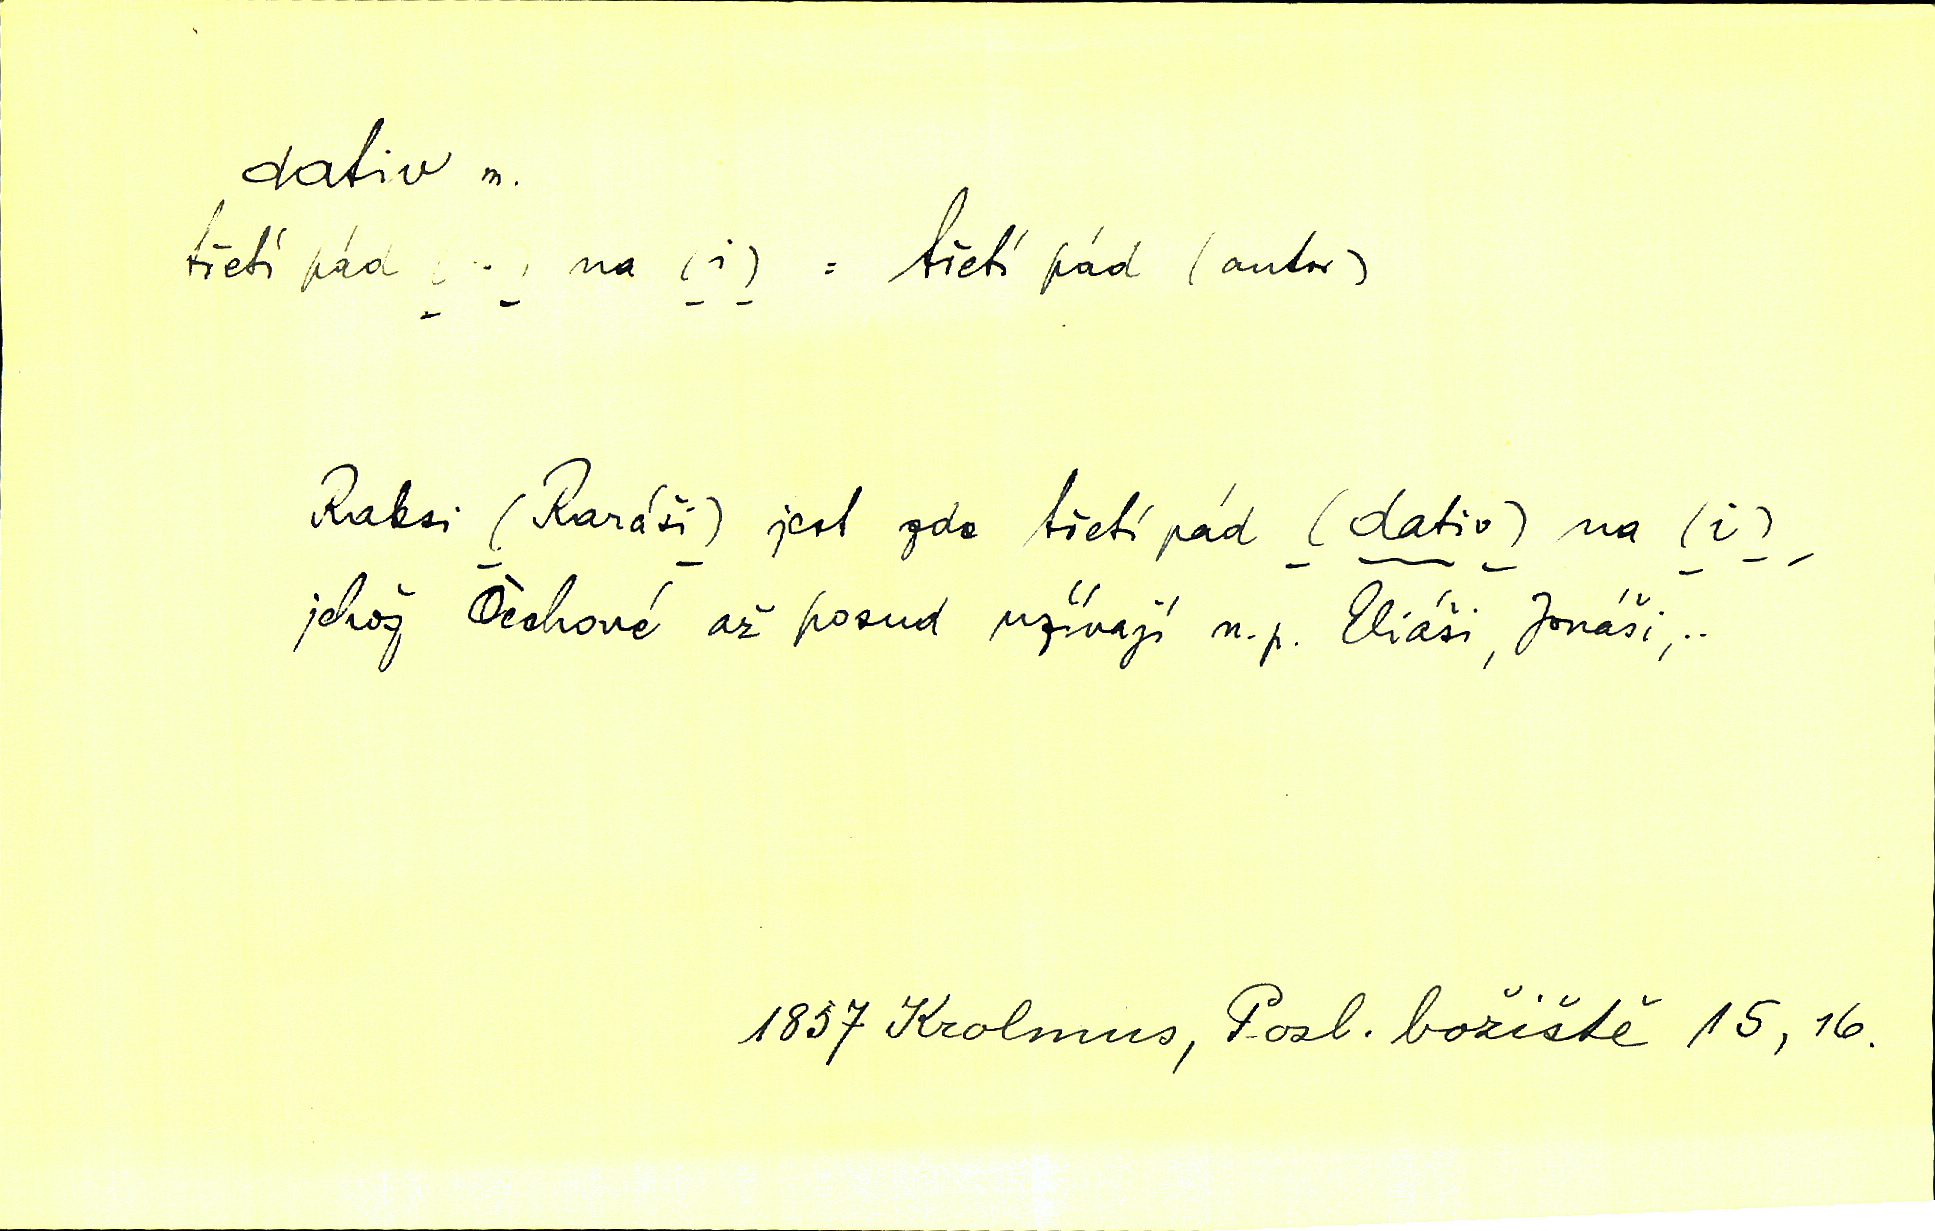 dativ m.
třetí pád (-) na (i) = třetí pád (autor)
Raksi (Raráši) jest zde třetí pád (dativ) na (i),
jehož Čechové až posud užívají n.p. Eliáši, Jonáši,..
1857 Krolmus, Posl. božiště 15, 16.